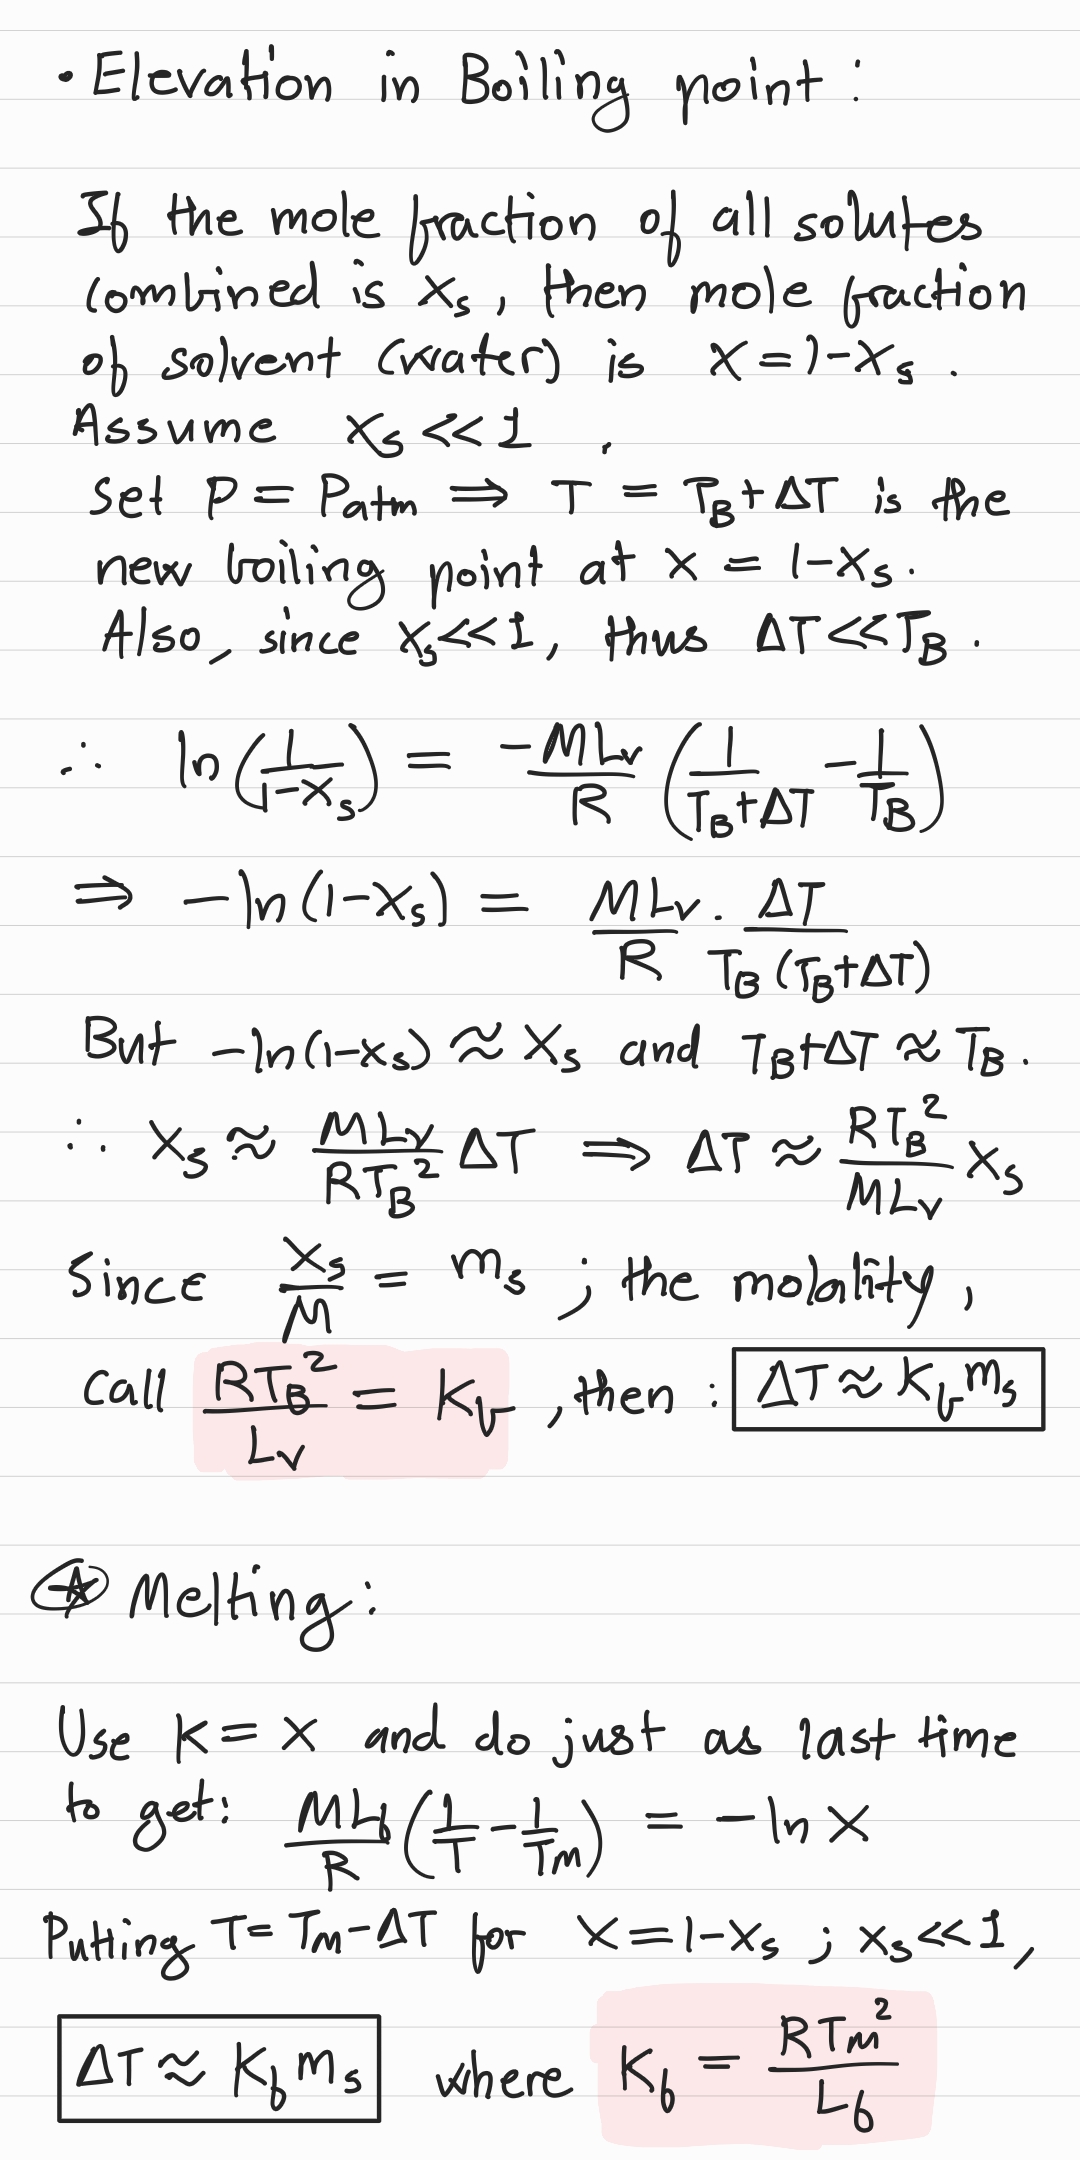 • Elevation in Boiling point :
If the mole fraction of all solutes
combined is xₛ, then mole fraction
of solvent (water) is x = 1-xₛ .
Assume xₛ << 1 .
Set P = Patm ⟹ T = T_B + ΔT is the
new boiling point at x = 1-xₛ.
Also, since xₛ<<1, thus ΔT<<T_B .
∴ ln(1/(1-xₛ)) = -MLv/R (1/(T_B+ΔT) - 1/T_B)
⟹ -ln(1-xₛ) = MLv/R . ΔT/(T_B(T_B+ΔT))
But -ln(1-xₛ) ≈ xₛ and T_B+ΔT ≈ T_B .
∴ xₛ ≈ MLv/(RT_B²) ΔT ⟹ ΔT ≈ RT_B²/(MLv) xₛ
Since xₛ/M = mₛ ; the molality,
Call RT_B²/Lv = K_b , then : ΔT ≈ K_b mₛ
⊛ Melting:
Use K = x and do just as last time
to get: ML_f/R (1/T - 1/Tm) = -ln x
Putting T = Tm-ΔT for x = 1-xₛ ; xₛ<<1,
ΔT ≈ K_f mₛ where K_f = RTm²/L_f